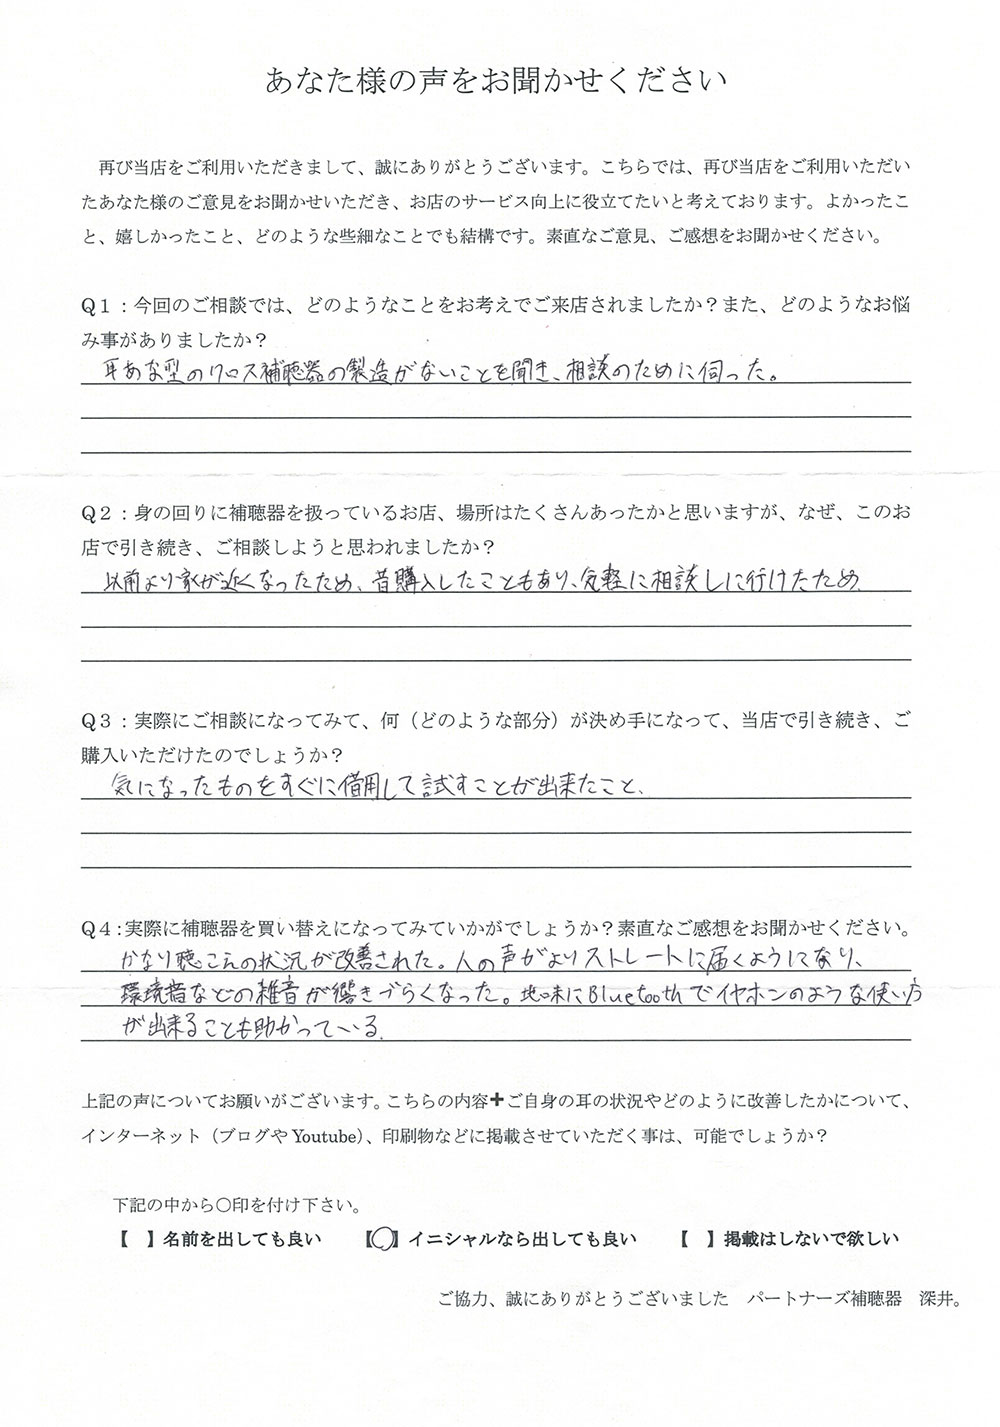 あなた様の声をお聞かせください
再び当店をご利用いただきまして、誠にありがとうございます。こちらでは、再び当店をご利用いただい
たあなた様のご意見をお聞かせいただき、お店のサービス向上に役立てたいと考えております。よかったこ
と、嬉しかったこと、どのような些細なことでも結構です。素直なご意見、ご感想をお聞かせください。
Q1：今回のご相談では、どのようなことをお考えでご来店されましたか？また、どのようなお悩
み事がありましたか？
耳あな型のクロス補聴器の製造がないことを聞き、相談のために伺った。
Q2：身の回りに補聴器を扱っているお店、場所はたくさんあったかと思いますが、なぜ、このお
店で引き続き、ご相談しようと思われましたか？
以前より家が近くなったため、昔購入したこともあり、気軽に相談しに行けたため、
Q3：実際にご相談になってみて、何（どのような部分）が決め手になって、当店で引き続き、ご
購入いただけたのでしょうか？
気になったものをすぐに借用して試すことが出来たこと、
Q4:実際に補聴器を買い替えになってみていかがでしょうか？素直なご感想をお聞かせください。
かなり聴こえの状況が改善された。人の声がよりストレートに届くようになり、
環境音などの雑音が響きづらくなった。地味にBluetoothでイヤホンのような使い方
が出来ることも助かっている。
上記の声についてお願いがございます。こちらの内容+ご自身の耳の状況やどのように改善したかについて、
インターネット（ブログやYoutube）、印刷物などに掲載させていただく事は、可能でしょうか？
下記の中から〇印を付け下さい。
【　】名前を出しても良い　【〇】イニシャルなら出しても良い　【　】掲載はしないで欲しい
ご協力、誠にありがとうございました　パートナーズ補聴器　深井。